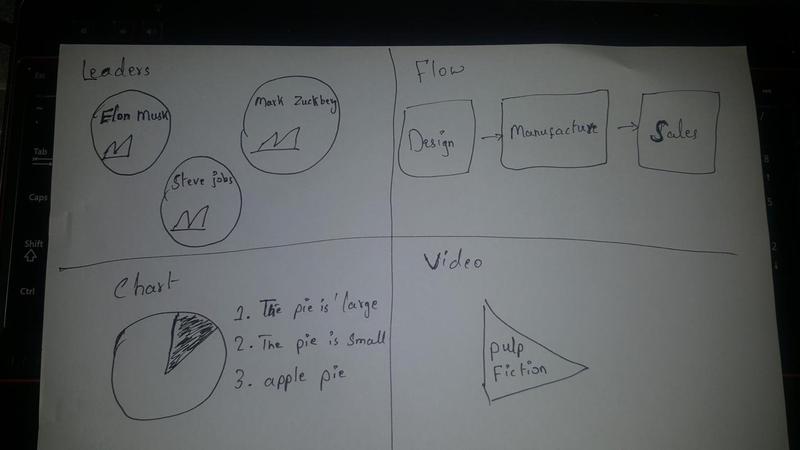 Leaders
Elon Musk
Mark Zuckberg
Steve jobs
Flow
Design
Manufacture
Sales
Chart
1. The pie is large
2. The pie is small
3. apple pie
Video
pulp
Fiction
Esc
Tab
Caps
Shift
Ctrl